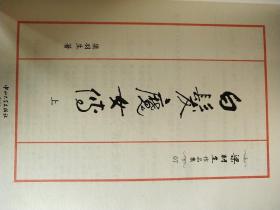 梁羽生作品集 07
白髮魔女傳 上
梁羽生 著
中山大学出版社